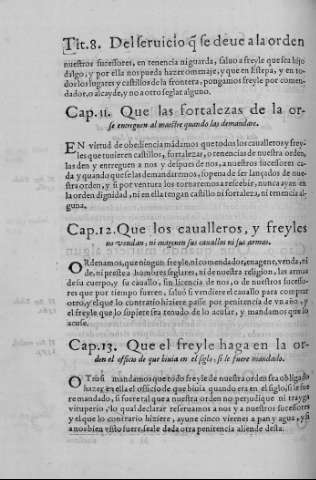 Tit.8. Del seruicio q̃ se deue a la orden
nuestros sucessores, en tenencia ni guarda, saluo a freyle que sea hijo
dalgo, y por ella nos pueda hazer omenaje, y que en Estepa, y en to-
dos los lugares y castillos de la frontera, pongamos freyles por comen-
dador, o alcayde, y no a otro seglar alguno.
Cap.11. Que las fortalezas de la or-
se entreguen al maestre quando las demandare.
EN virtud de obediencia mãdamos que todos los caualleros y frey-
les que tuuieren castillos, fortalezas, o tenencias de nuestra orden,
las den y entreguen a nos y despues de nos, a nuestros sucessores ca-
da y quando que se las demandaremos, so pena de ser lançados de nue-
stra orden, y si por ventura los tornaremos a rescebir, nunca ayan en
la orden dignidad, ni en ella tengan castillo ni fortaleza, ni tenencia al-
guna.
Cap.12. Que los caualleros, y freyles
no vendan, ni enagenen sus cauallos ni sus armas.
ORdenamos, que ningun freyle, ni comendador, enagene, venda, ni
de, ni preste a hombres seglares, ni de nuestra religion, las armas
de su cuerpo, y su cauallo, sin licencia de nos, o de nuestros sucesso-
res que por tiempo fueren, saluo si vendiere el cauallo para comprar
otro, y el que lo contrario hiziere passe por penitencia de vn año, y
el freyle que lo supiere sea tenudo de lo acusar, y mandamos que lo
acuse.
Cap.13. Que el freyle haga en la or-
den el officio de que biuia en el siglo, si le fuere mandado.
OTrosi mandamos que todo freyle de nuestra orden sea obligado
hazer en ella el officio de que biuia quando era en el siglo, si le fue
re mandado, si fuere tal que a nuestra orden no perjudique ni trayga
vituperio, lo qual declarar reseruamos a nos y a nuestros sucessores
y el que lo contrario hiziere, ayune cinco viernes a pan y agua, y si
a nos bien visto fuere, sea le dada otra penitencia allende desta.